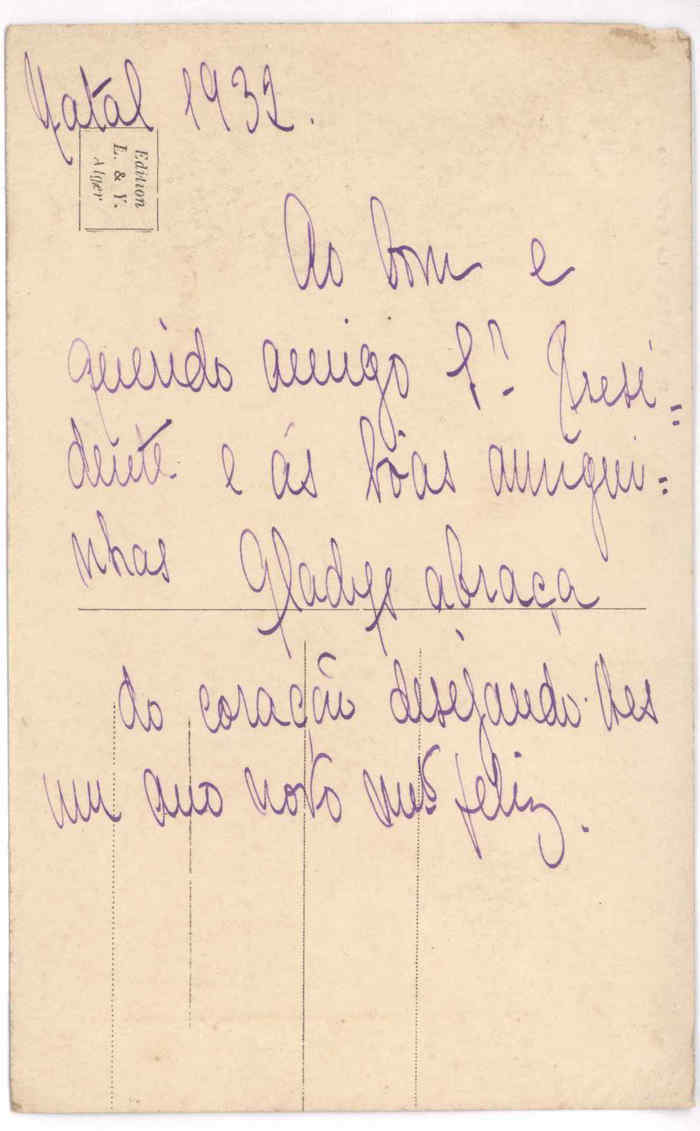 Natal 1932.
Edition
L. & Y.
Alger
Ao bom e
querido amigo Sr. Presi=
dente e ás bôas amigui=
nhas Gladys abraça
do coração desejando-lhes
um ano novo mto feliz.